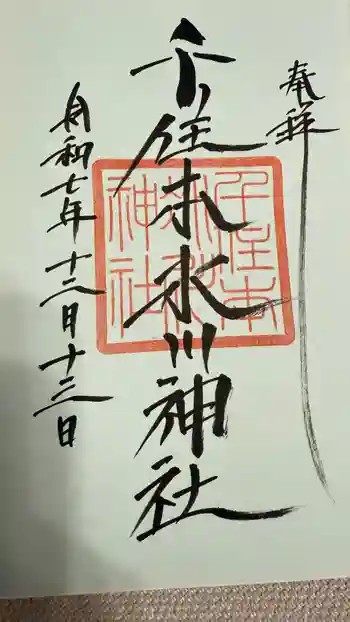 奉拝
千住本氷川神社
千住本
氷川
神社
令和七年十二月十三日